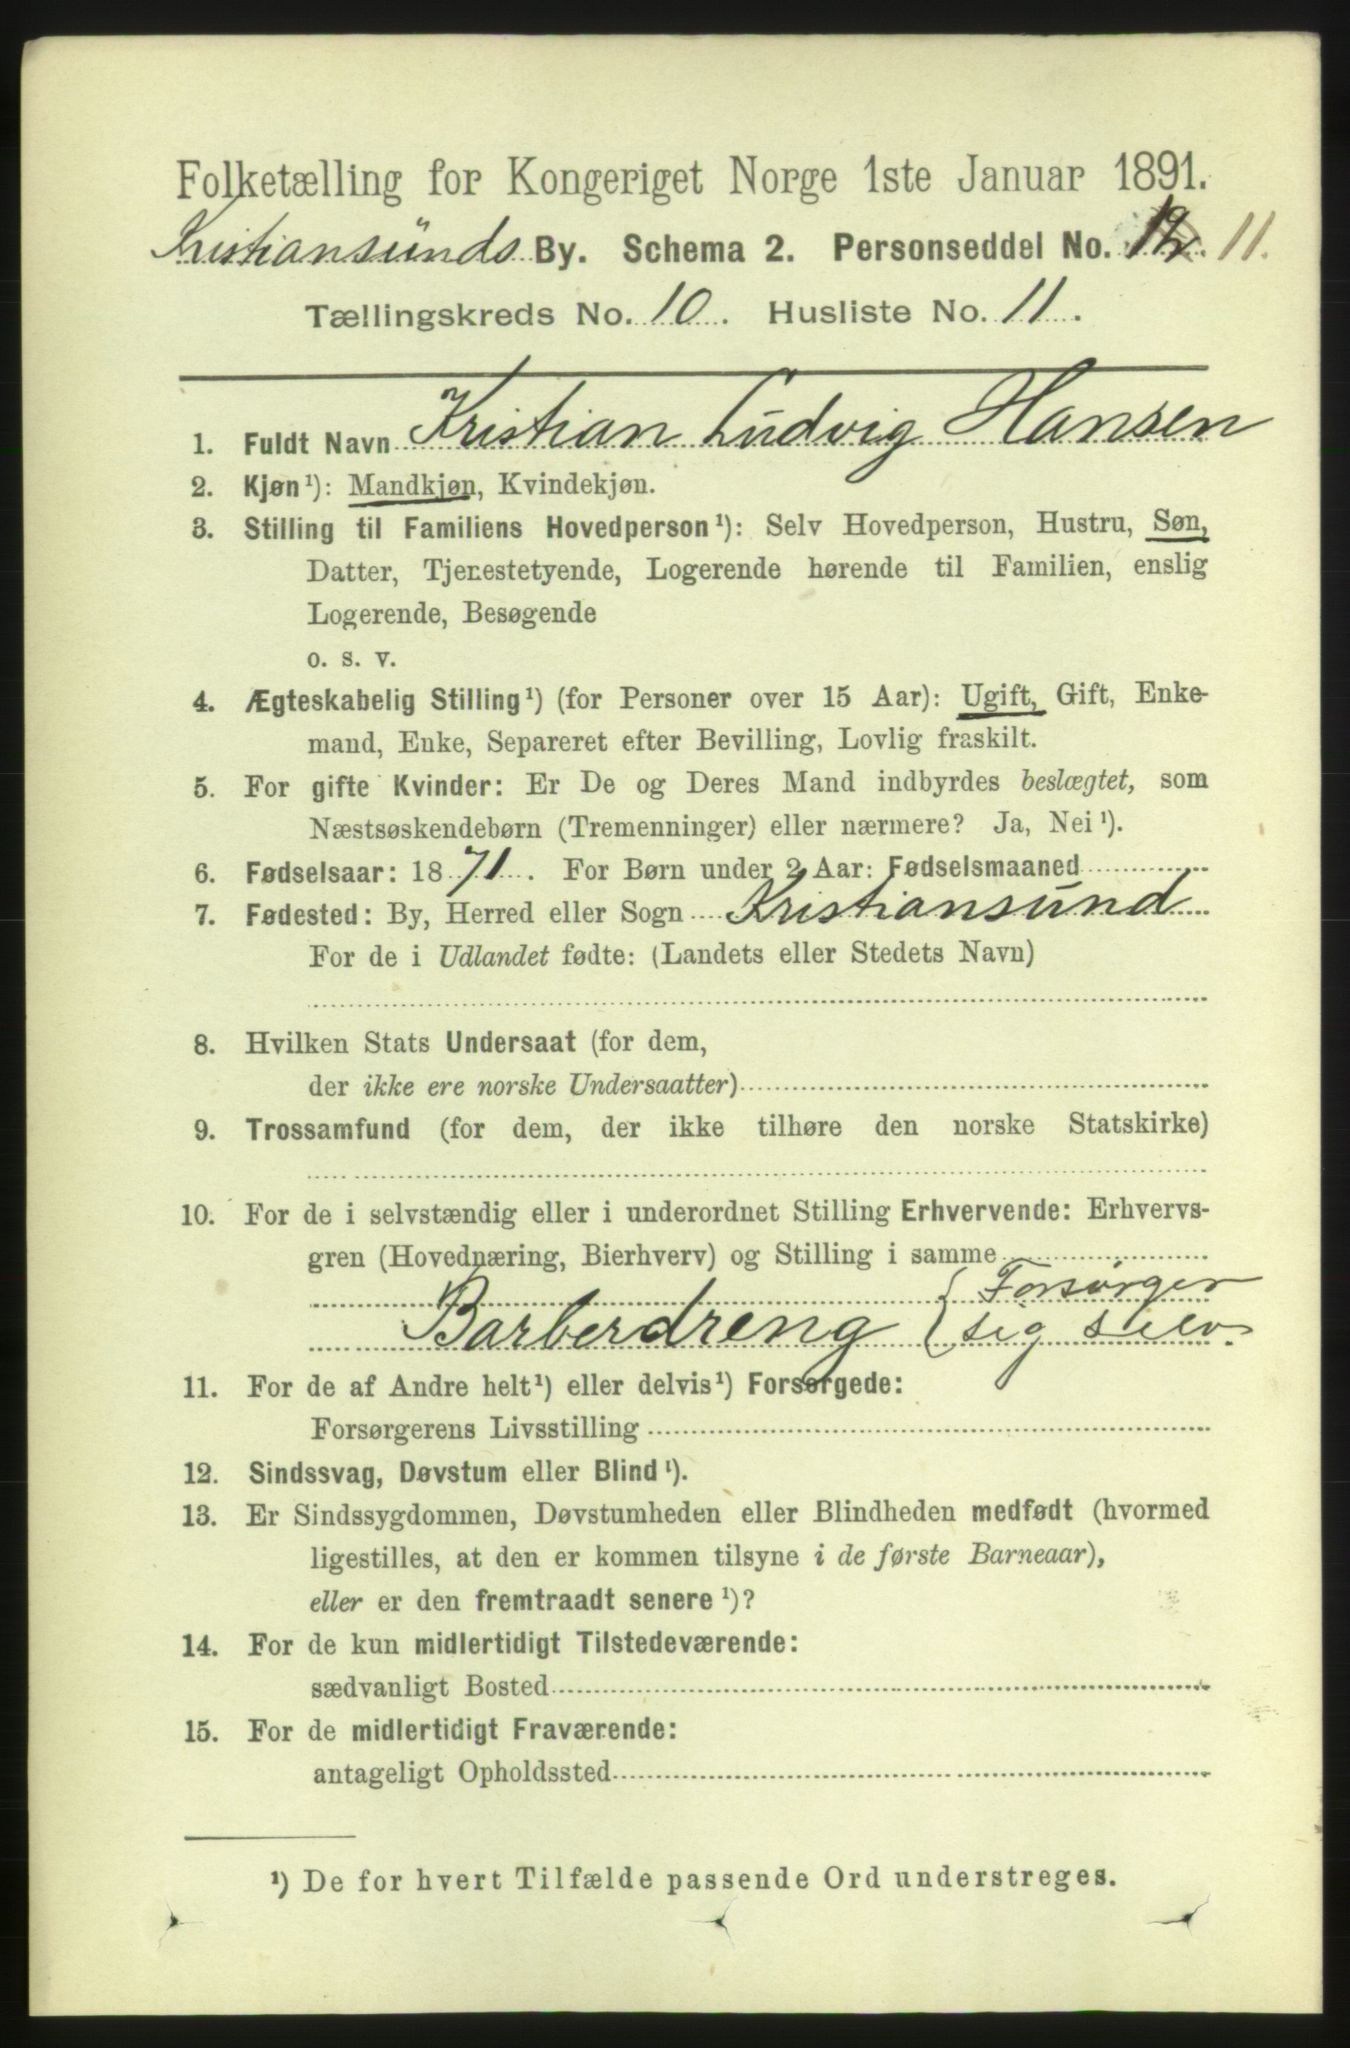 Folketælling for Kongeriget Norge 1ste Januar 1891.
Kristiansunds By. Schema 2. Personseddel No. 12. 11.
Tællingskreds No. 10. Husliste No. 11.
1. Fuldt Navn Kristian Ludvig Hansen
2. Kjøn¹): Mandkjøn, Kvindekjøn.
3. Stilling til Familiens Hovedperson¹): Selv Hovedperson, Hustru, Søn,
Datter, Tjenestetyende, Logerende hørende til Familien, enslig
Logerende, Besøgende
o. s. v.
4. Ægteskabelig Stilling¹) (for Personer over 15 Aar): Ugift, Gift, Enke-
mand, Enke, Separeret efter Bevilling, Lovlig fraskilt.
5. For gifte Kvinder: Er De og Deres Mand indbyrdes beslægtet, som
Næstsøskendebørn (Tremenninger) eller nærmere? Ja, Nei¹).
6. Fødselsaar: 1871. For Børn under 2 Aar: Fødselsmaaned
7. Fødested: By, Herred eller Sogn Kristiansund
For de i Udlandet fødte: (Landets eller Stedets Navn)
8. Hvilken Stats Undersaat (for dem,
der ikke ere norske Undersaatter)
9. Trossamfund (for dem, der ikke tilhøre den norske Statskirke)
10. For de i selvstændig eller i underordnet Stilling Erhvervende: Erhvervs-
gren (Hovednæring, Bierhverv) og Stilling i samme
Barberdreng { Forsørger
sig selv.
11. For de af Andre helt¹) eller delvis¹) Forsørgede:
Forsørgerens Livsstilling
12. Sindssvag, Døvstum eller Blind¹).
13. Er Sindssygdommen, Døvstumheden eller Blindheden medfødt (hvormed
ligestilles, at den er kommen tilsyne i de første Barneaar),
eller er den fremtraadt senere¹)?
14. For de kun midlertidigt Tilstedeværende:
sædvanligt Bosted
15. For de midlertidigt Fraværende:
antageligt Opholdssted
¹) De for hvert Tilfælde passende Ord understreges.